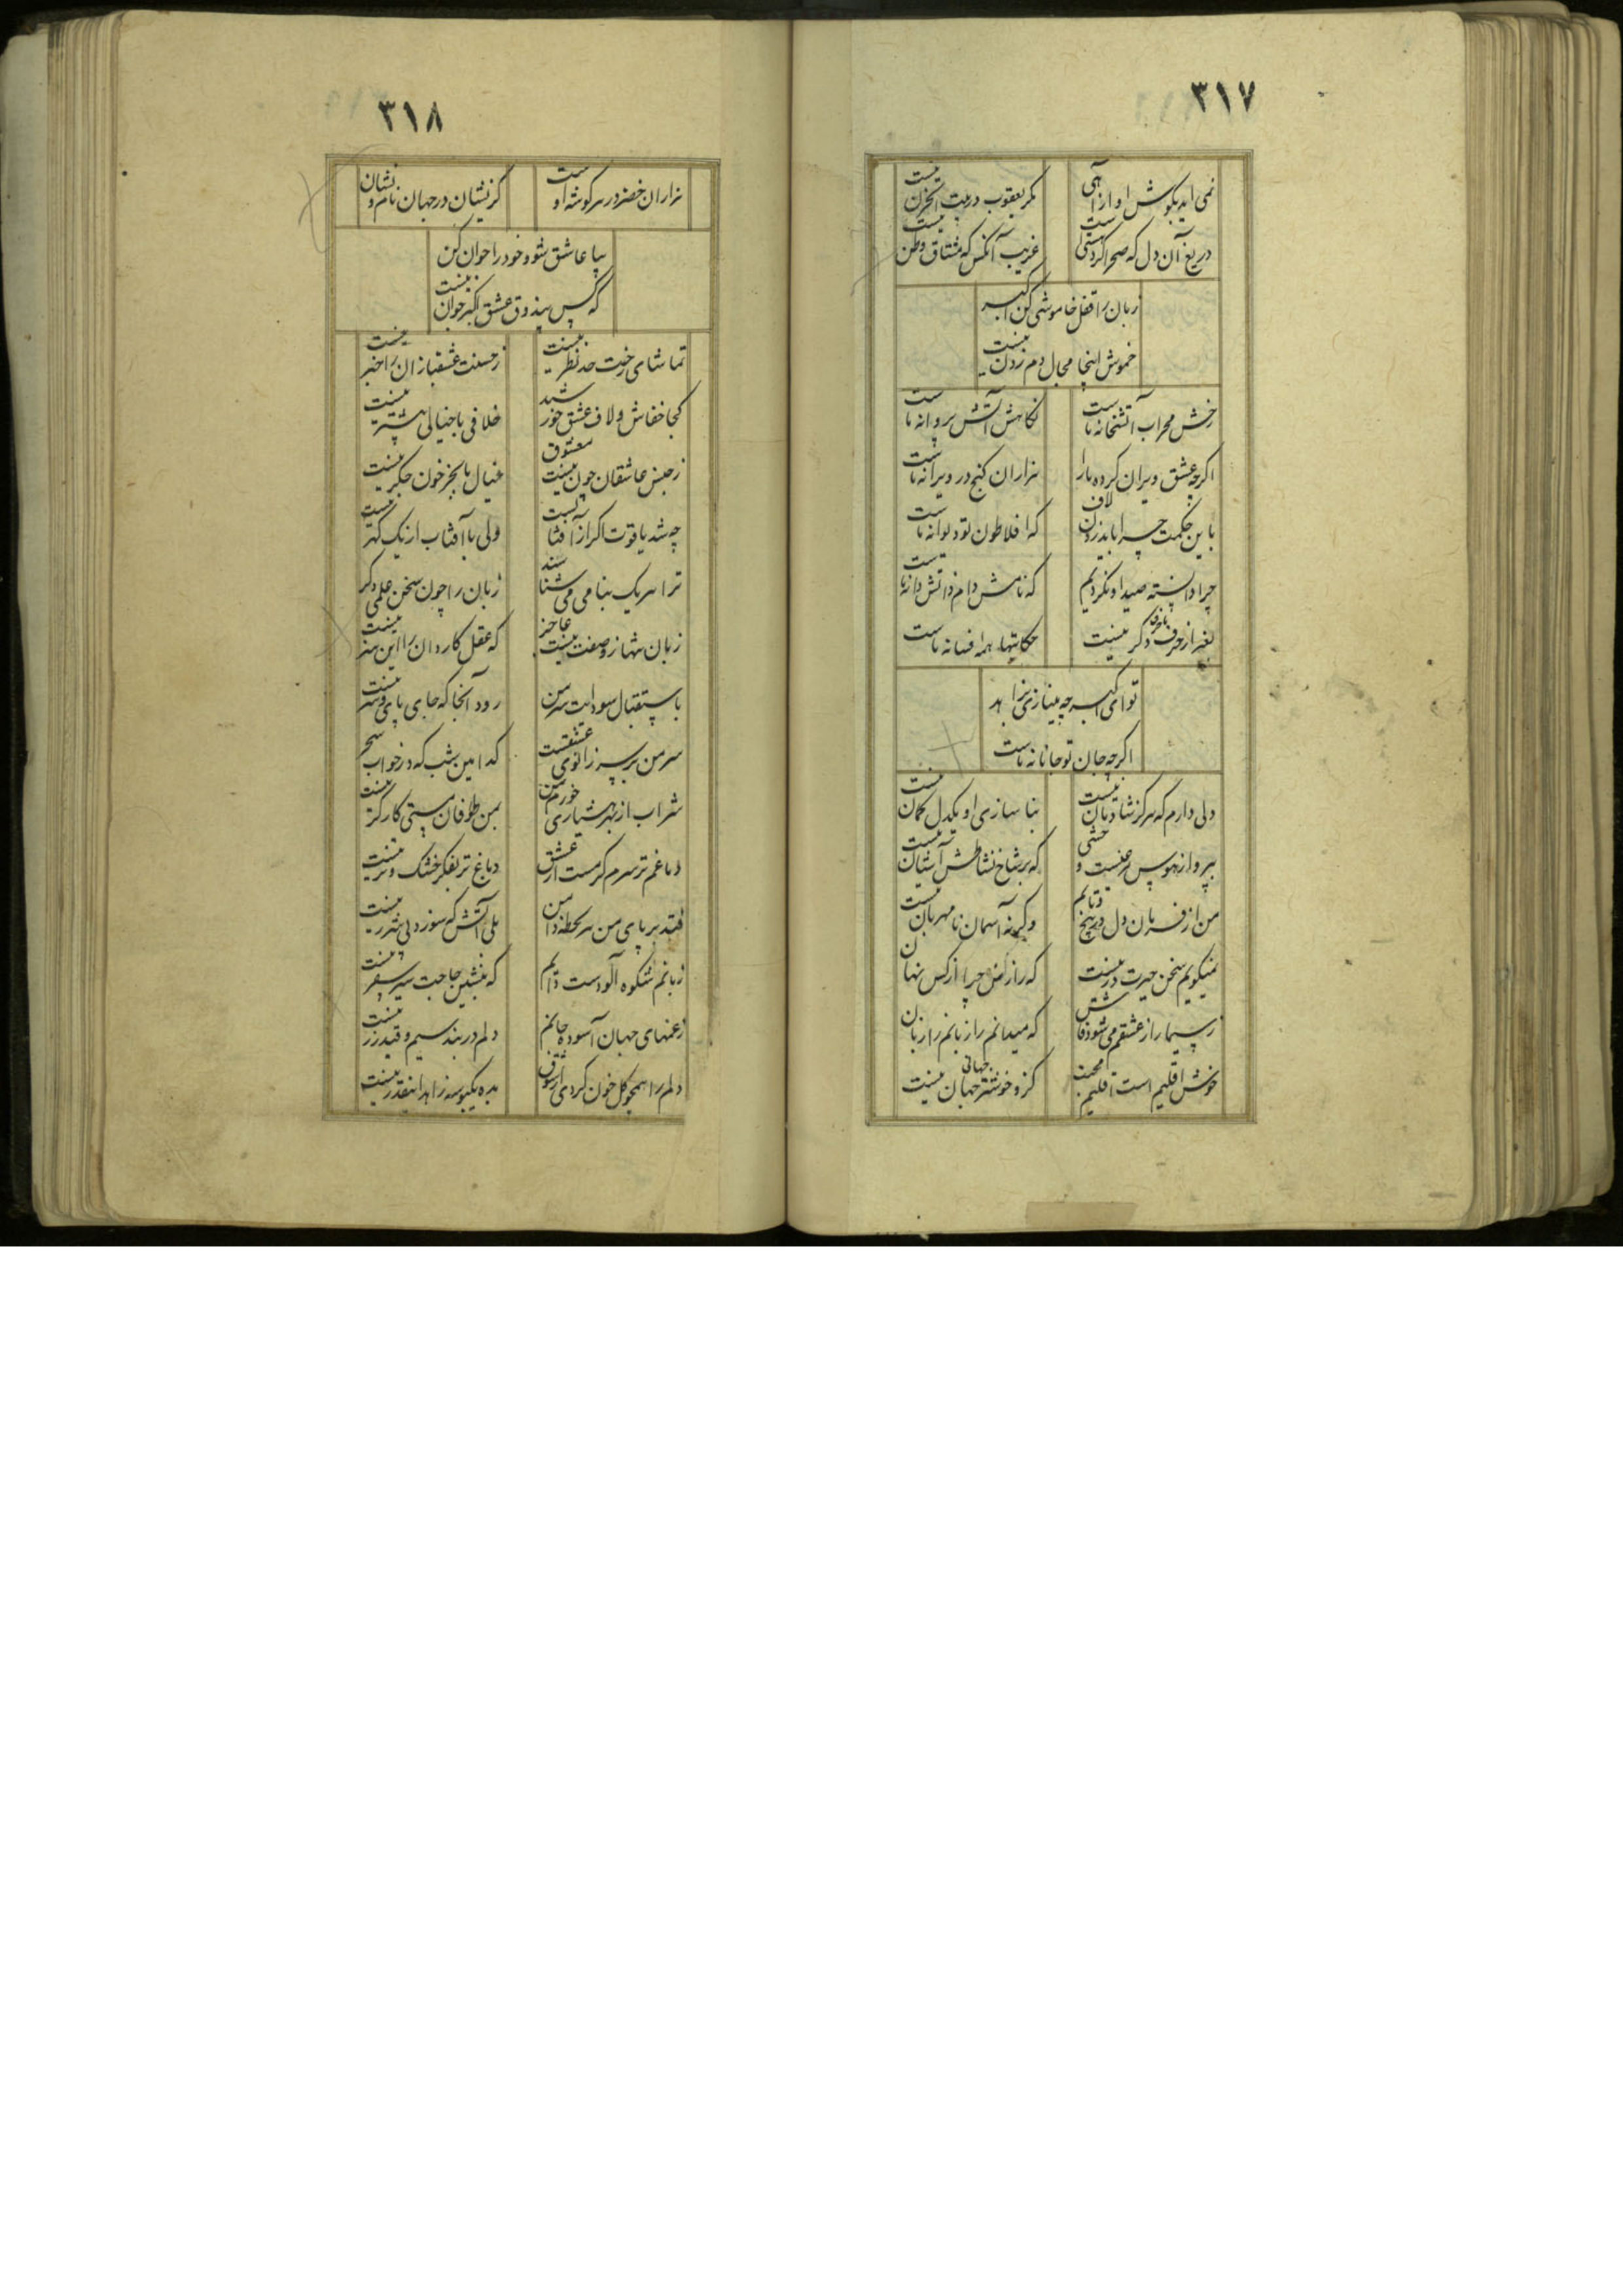 ۳۱۷
نمی آید بگوش آواز آهی
مگر یعقوب در بیت الحزن نیست
دریغ آن دل که صحرا گرد نیست
غریب آنکس که مشتاق وطن نیست
زبان را قفل خاموشی کن اکبر
خموش اینجا مجال دم زدن نیست
رخش محراب آتشخانه ماست
نکاهش آتش پروانه ماست
اگرچه عشق ویران کرده ما را
هزاران کنج در ویرانه ماست
باین حکمت چرا باید زدن لاف
که افلاطون تو دیوانه ماست
چرا دانسته صید او نگردیم
که نامش دام و آتش دانه ماست
بغیر از حرف دگر نیست
حکایتها همه افسانه ماست
تو ای اکبر چه مینازی بزاهد
اگرچه جان تو جانانه ماست
دلی دارم که هرگز شادمان نیست
بناسازی او یکدل گمان نیست
بپرواز هوس مرغیست وحشی
که بر شاخ نشاطش آشیان نیست
من از فرمان دل در رنج و تابم
وگرنه آسمان نامهربان نیست
نمیگویم سخن حیرت درینست
که راز من چرا از کس نهان
ز سیما راز عشقم می شود فاش
که میدانم رازبانم رازبان
خوش اقلیم است اقلیم محبت
کزو خوشتر جهانی جهان نیست
۳۱۸
هزاران خضر در هر گوشه اوست
کزیشان در جهان نام و نشان
بیا عاشق شو و خود را جوان کن
که کس بیذوق عشق اکبر جوان نیست
تماشای رخت حد نظر نیست
ز حسنت عشقبازان را خبر نیست
کجا خفاش و لاف عشق خورشید
خلافی با خیالی بیشتر نیست
ز جنس عاشقان چون نیست معشوق
خیال ما بجز خون جگر نیست
چه شد یاقوت اگر از آفتابست
ولی با آفتاب از یک گهر نیست
ترا هر یک بنامی می شناسند
زبان را چون سخن علمی دگر
زبان تنها ز وصفت نیست عاجز
که عقل کاردان را این هنر نیست
باستقبال سودایت سر من
رود آنجا که جای پای و سر نیست
سر من بر سر زانوی عشقست
کدامین شب که در خواب سحر
شراب از بهر هشیاری خورم من
بمن طوفان مستی کارگر نیست
دماغم تر سرم گرمست از عشق
دماغ تر بفکر خشک و تر نیست
فتد بر پای من هر لحظه دامن
بلی آتش که سوزد بی شرر نیست
زبانم شکوه آلودست دایم
که بنشین حاجت سیر سفر نیست
ز غمهای جهان آسوده جانم
دلم در بند سیم و قید زر نیست
دلم را همچو گل خون کردی از شوق
بده یکبوسه زاهد اینقدر نیست